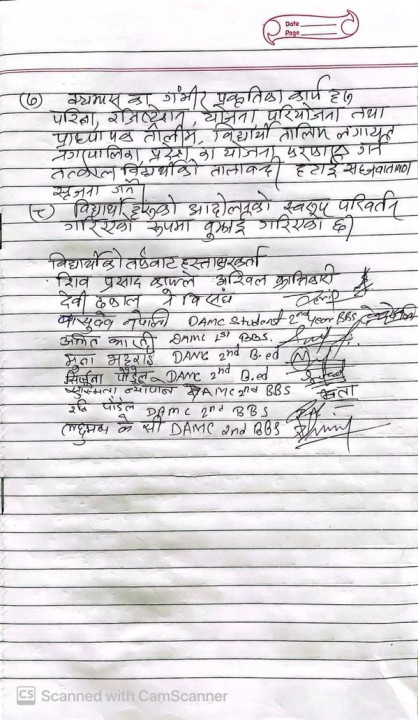 Date
Page
(७) क्याम्पस का गंभीर प्रकृतिका कार्य हरु
परिक्षा, रजिष्ट्रेशन, योजना परियोजना तथा
प्राध्यापक तालीम, विद्यार्थी तालिम लगायत
नगरपालिका, प्रदेश का योजना गर्न
तत्काल विद्यार्थीको तालाबन्दी हटाई सहज वातावरण
सृजना गर्ने।
(८) विद्यार्थी हरुको आन्दोलनको स्वरुप परिवर्तन
गरिएको रुपमा बुझाई गरिएको छ।
विद्यार्थीको तर्फबाट हस्ताक्षरकर्ता
शिव प्रसाद काफ्ले अखिल क्रान्तिकारी
देवी ढकाल ने वि संघ
बासुदेव नेपाली DAMC Student 2nd year BBS
DAMC 1st BBS.
DAMC 2nd B.ed
पौडेल DAMC 2nd B.ed
DAMC 2nd BBS
पौडेल DAMC 2nd BBS
के सी DAMC 2nd BBS
CS Scanned with CamScanner